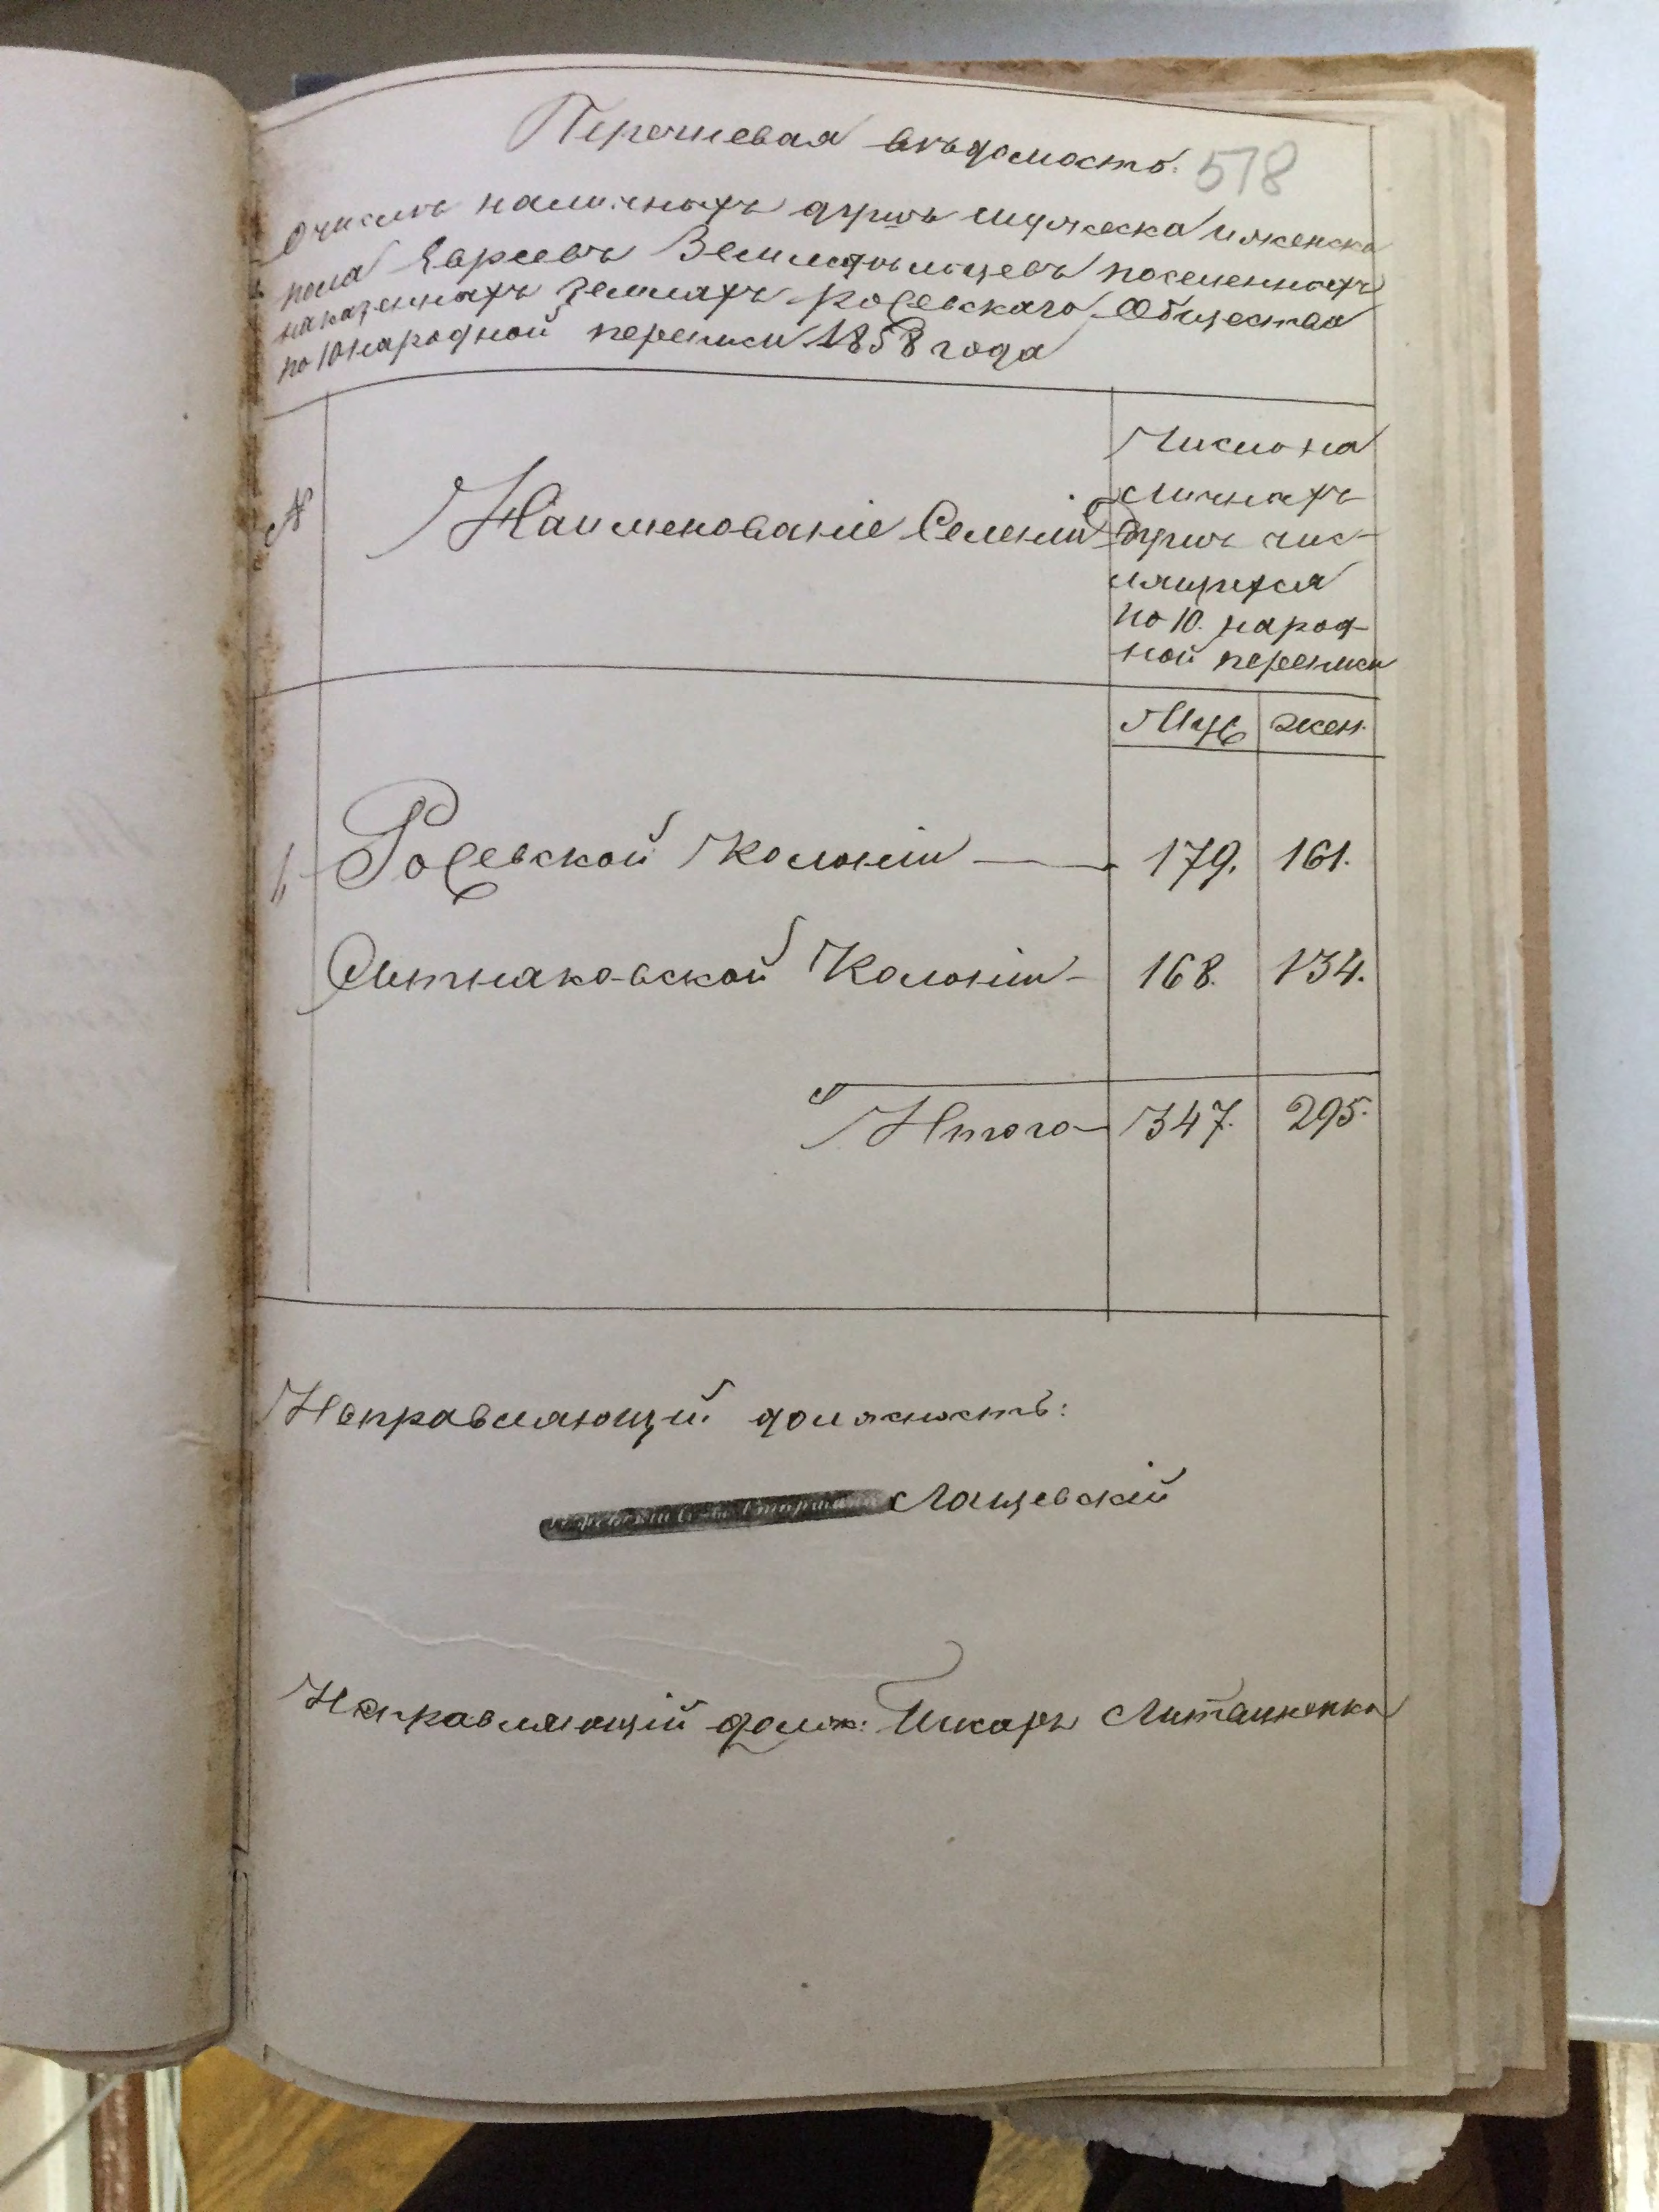 Перечневая вѣдомость. 578
О числѣ наличныхъ душъ мужеска и женска
пола Евреевъ Земледѣльцевъ поселенныхъ
на казенныхъ земляхъ Роževскаго Общества
по 10 народной переписи 1858 года
№ Наименованіе Селеній
Число на
личныхъ
душъ чис-
лящихся
по 10. народ-
ной переписи
Муж жен.
1. Рожевской Колоніи — 179. 161.
Ситняковской Колоніи - 168. 134.
Итого - 347. 295.
Исправляющій должность:
Лащевскій
Исправляющій долж: Писаря Литвиненко